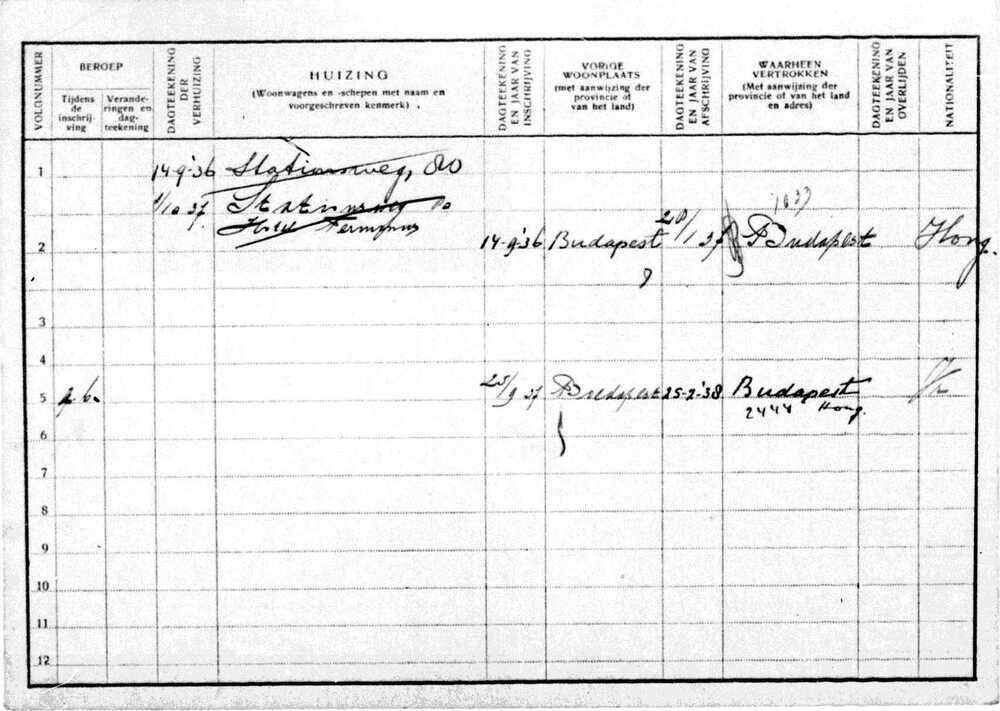 VOLGNUMMER
BEROEP
Tijdens de inschrij-ving
Verande-ringen en dag-teekening
DAGTEEKENING DER VERHUIZING
HUIZING
(Woonwagens en -schepen met naam en
voorgeschreven kenmerk)
DAGTEEKENING EN JAAR VAN INSCHRIJVING
VORIGE
WOONPLAATS
(met aanwijzing der
provincie of
van het land)
DAGTEEKENING EN JAAR VAN AFSCHRIJVING
WAARHEEN
VERTROKKEN
(Met aanwijzing der
provincie of van het land
en adres)
DAGTEEKENING EN JAAR VAN OVERLIJDEN
NATIONALITEIT
1 14-9-'36 Stationsweg, 80
1/10 37. Stationsweg 80
Hotel Hermanns
2 14-9-'36 Budapest 20/1 37 Budapest Hong.
3
4
5 25/9 37 Budapest 25-2-'38 Budapest
2444 Hong.
6
7
8
9
10
11
12